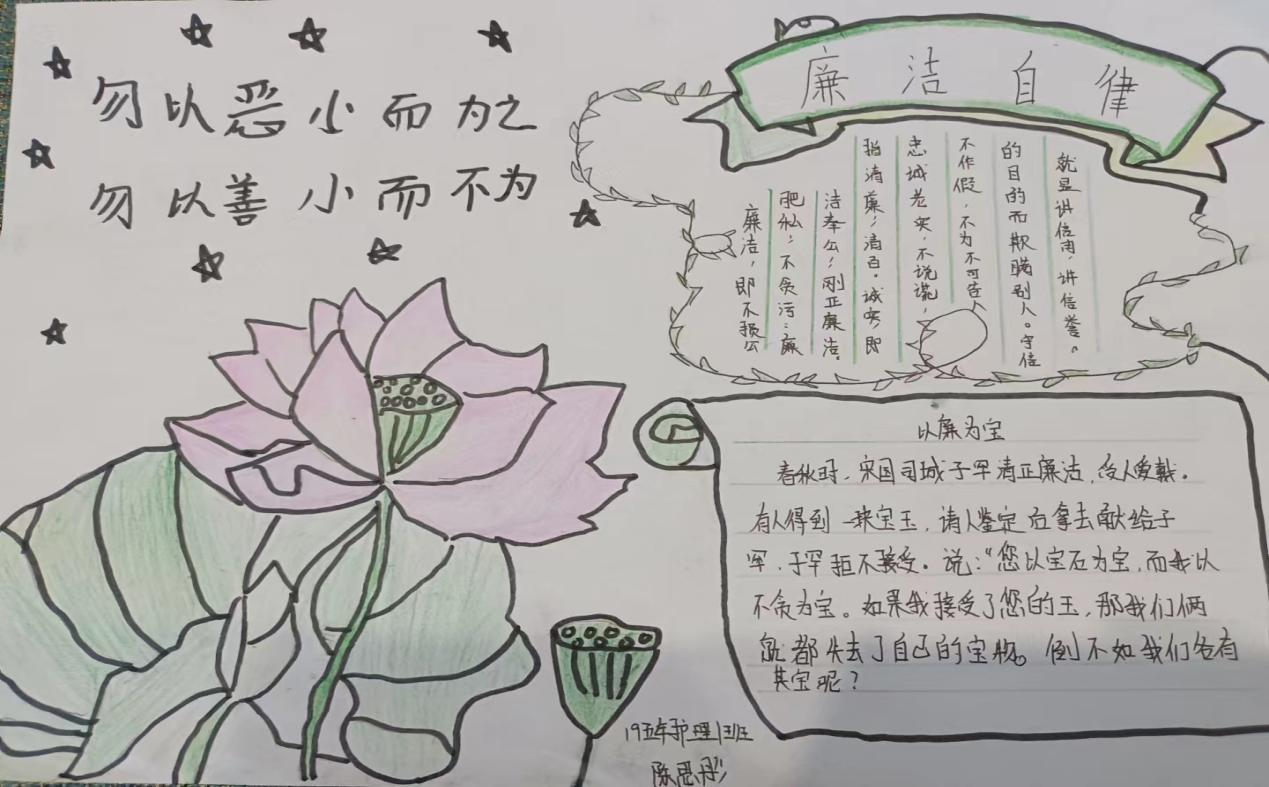 勿以恶小而为之
勿以善小而不为
廉洁自律
廉洁，即不损公
肥私；不贪污；廉
洁奉公；刚正廉洁。
指清廉；清白。诚实，即
忠城老实，不说谎，
不作假，不为不可告
的目的而欺瞒别人。守信
就是讲信用，讲信誉。
以廉为宝
春秋时，宋国司城子罕清正廉洁，受人爱戴。
有人得到一块宝玉，请人鉴定后拿去献给子
罕，子罕拒不接受。说："您以宝石为宝，而我以
不贪为宝。如果我接受了您的玉，那我们俩
就都失去了自己的宝物。倒不如我们各有
其宝呢？
19五年护理1班
陈思彤